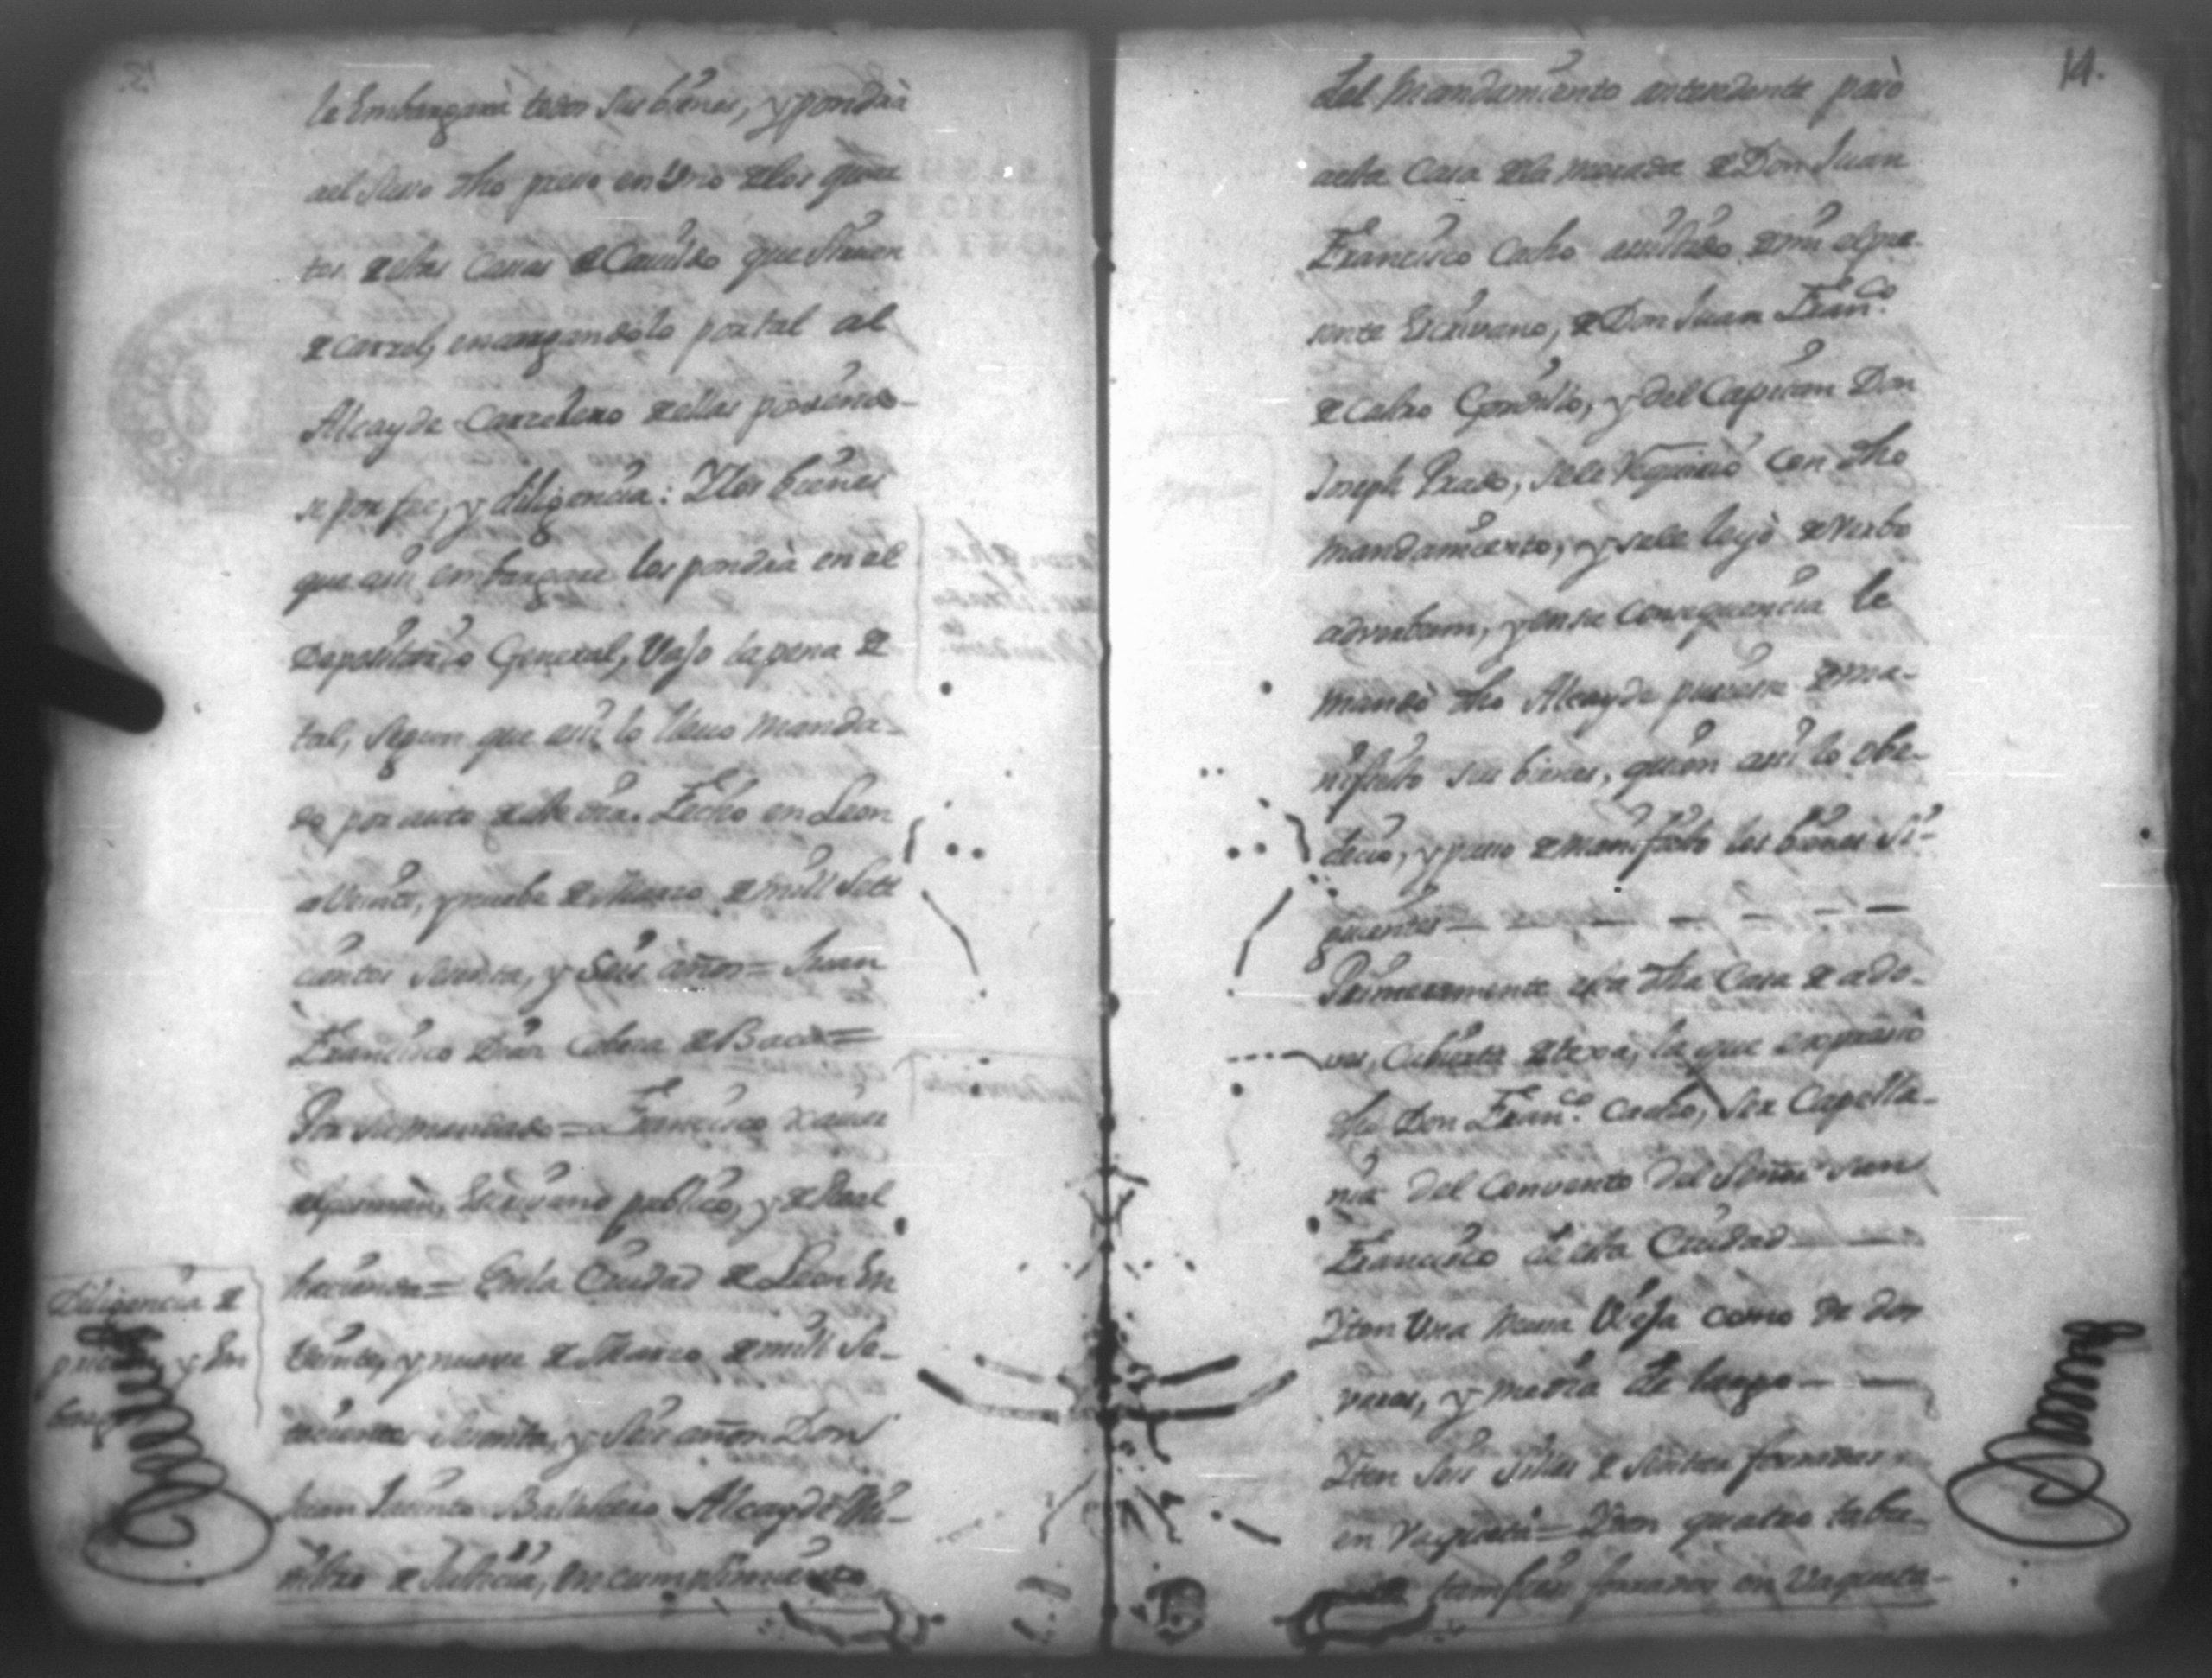 le Embargará todos sus bienes, y pondrá
a el suso dho preso en Uno de los quar
tos de estas Casas de Cavildo que Sirven
de carzel, encargandolo por tal al
Alcayde Carzelero de ellas poniendo-
se por fee, y diligencia: Y los bienes
que assi embargare los pondrá en el
Depositario General, Vajo la pena de
tal, segun que assi lo llevo manda-
do por auto de este dia. Fecho en Leon
a Veinte, y nuebe de Marzo de mill Sete
cientos Sesenta, y Seis años = Juan
Francisco Dias Cabeza de Baca =
Por su mandado = Francisco Xavier
de Guzman, Escrivano publico, y de Real
hacienda = En la Ciudad de Leon En
Veinte, y nueve de Marzo de mill Se-
tecientos Sesenta, y Seis años Don
Juan Jacinto Ballestero Alcayde Mi-
nistro de Justicia, En cumplimiento
Diligencia de
prision, y Em
bargo
14.
del Mandamiento antecedente pasó
a esta Casa de la morada de Don Juan
Francisco Cacho assistido de mi el pre-
sente Escrivano, de Don Juan Franco.
de Castro Gordillo, y del Capitan Don
Joseph Prado, se le Requirió con dho
mandamiento, y se le leyó de Verbo
adverbum, y en su Consequencia le
mandó dho Alcayde pusiese de ma-
nifiesto sus bienes, quien assi lo obe-
deció, y puso de manifiesto los bienes Si-
guientes
Primeramente esta dha Casa de ado-
ves, Cubierta de texa, la que expressó
dho Don Franco. Cacho, ser Capella-
nia del Convento del Señor San
Francisco de esta Ciudad
Yten Una Mesa Vieja como de dos
varas, y media de largo
Yten Seis Sillas de Sentar forradas
en Vaqueta = Yten quatro tabu-
tambien forrados en Vaqueta-